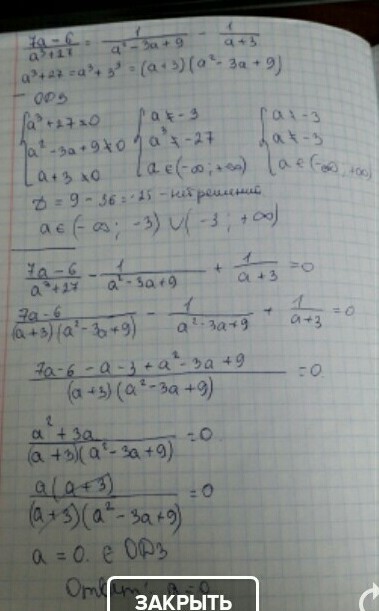 7a-6/a³+27 = 1/a²-3a+9 - 1/a+3
a³+27=a³+3³=(a+3)(a²-3a+9)
ОДЗ
{a³+27≠0 {a≠-3 {a≠-3
a²-3a+9≠0 a³≠-27 a≠-3
a+3≠0 a∈(-∞; +∞) a∈(-∞; +∞)
D = 9-36=-25 - нет решений
a∈(-∞; -3)∪(-3; +∞)
7a-6/a³+27 - 1/a²-3a+9 + 1/a+3 =0
7a-6/(a+3)(a²-3a+9) - 1/a²-3a+9 + 1/a+3 =0
7a-6-a-3+a²-3a+9/(a+3)(a²-3a+9) =0
a²+3a/(a+3)(a²-3a+9) =0
a(a+3)/(a+3)(a²-3a+9) =0
a=0. ∈ ОДЗ
Ответ:
ЗАКРЫТЬ